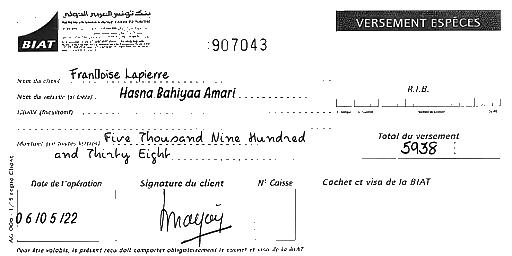 بنك تونس العربي الدولي
BIAT
:907043
VERSEMENT ESPÈCES
Nom du client Franlloise Lapierre
Nom du remettant (si tiers) Hasna Bahiyaa Amari
Libellé (facultatif)
R.I.B.
Montant (en toutes lettres) Five Thousand Nine Hundred
and Thirty Eight
Total du versement
5938
Date de l'opération
06/05/22
Signature du client
N° Caisse
Cachet et visa de la BIAT
Pour être valable, le présent reçu doit comporter obligatoirement le cachet et visa de la BIAT